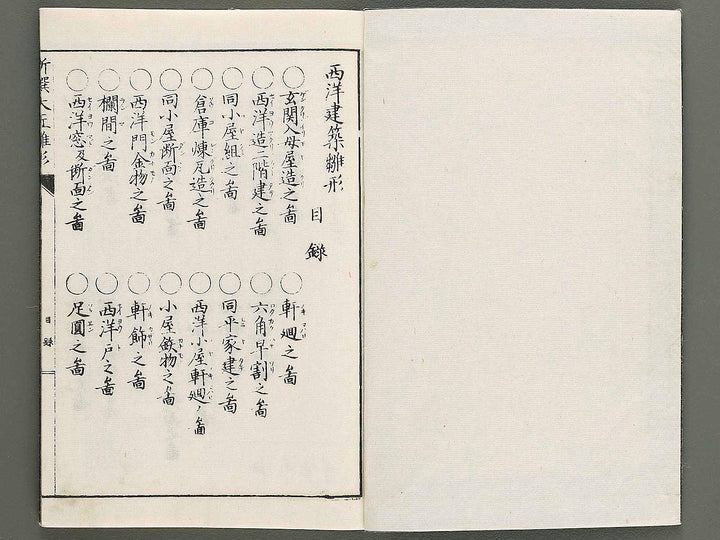 西洋建築雛形
目録
玄関入母屋造之啚
西洋造二階建之啚
同小屋組之啚
倉庫煉瓦造之啚
同小屋断面之啚
西洋門金物之啚
欄間之啚
西洋窓及断面之啚
軒廻之啚
六角早割之啚
同平家建之啚
西洋小屋軒廻ノ啚
小屋鉄物之啚
軒飾之啚
西洋戸之啚
足圓之啚
新撰大匠雛形
目録